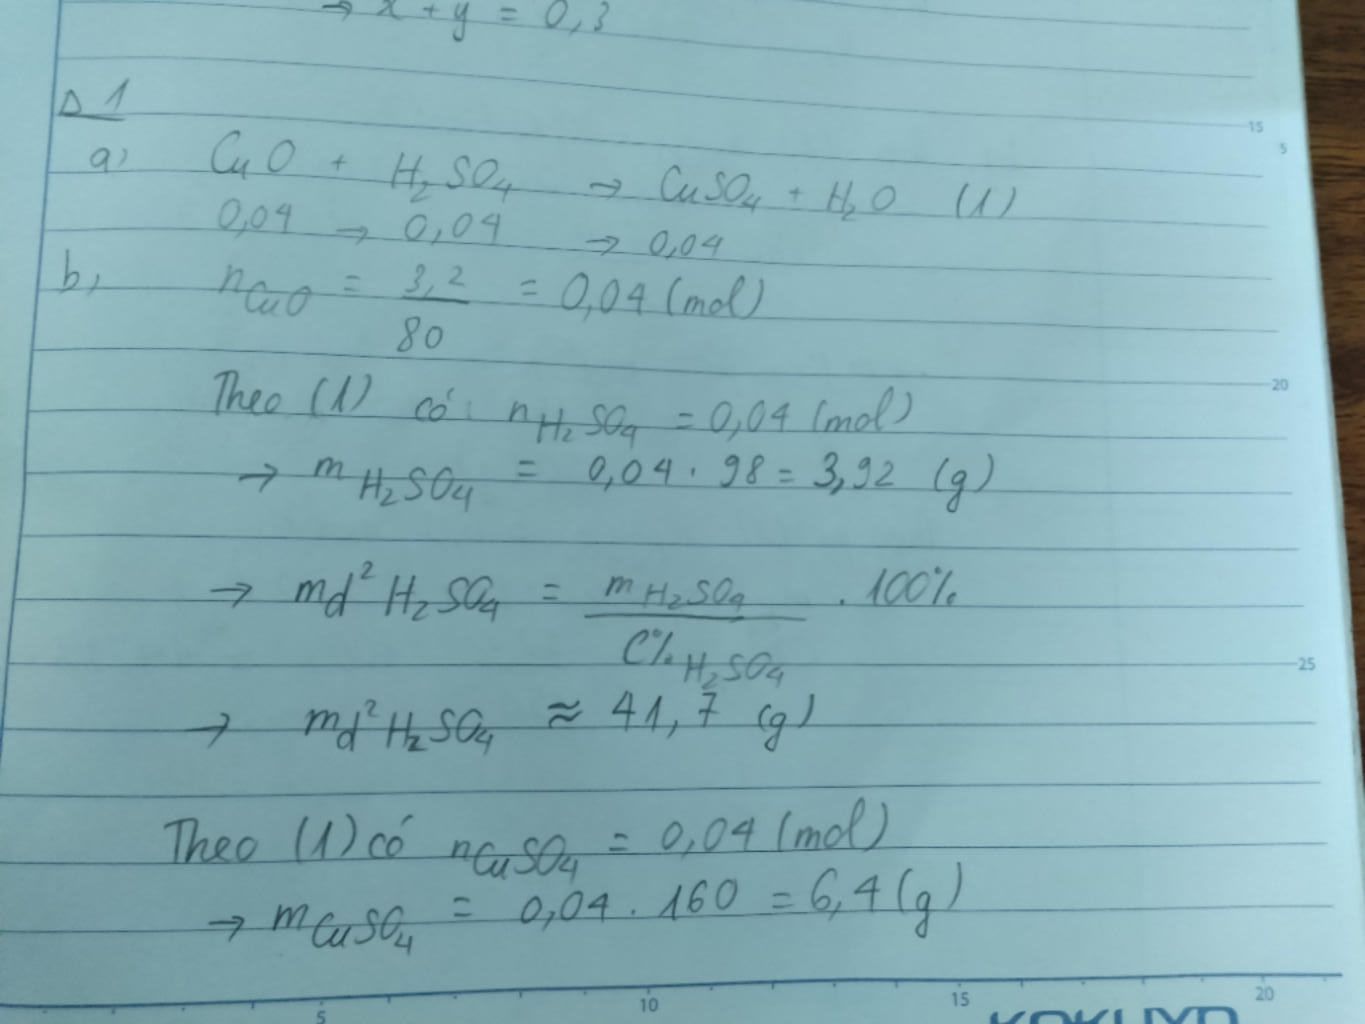 → x + y = 0,3
△ 1
a, CuO + H₂SO₄ → CuSO₄ + H₂O (1)
0,04 → 0,04 → 0,04
b, nCuO = 3,2 / 80 = 0,04 (mol)
Theo (1) có: nH₂SO₄ = 0,04 (mol)
→ mH₂SO₄ = 0,04 . 98 = 3,92 (g)
→ md² H₂SO₄ = mH₂SO₄ / C%H₂SO₄ . 100%
→ md² H₂SO₄ ≈ 41,7 (g)
Theo (1) có nCuSO₄ = 0,04 (mol)
→ mCuSO₄ = 0,04 . 160 = 6,4 (g)
15
5
20
25
5 10 15 20
KOKUYO